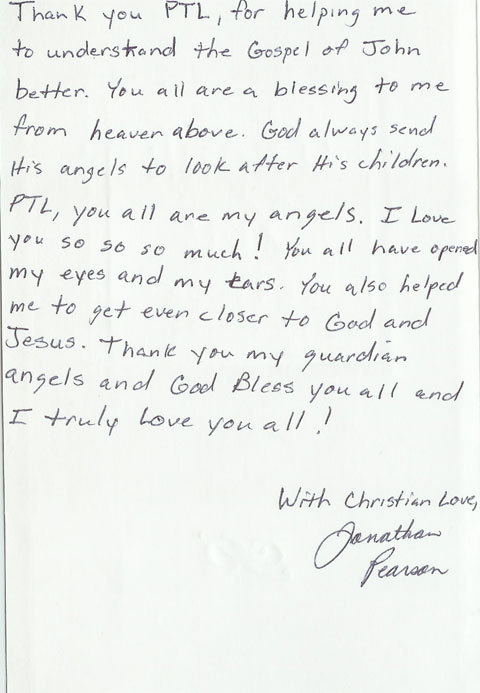 Thank you PTL, for helping me
to understand the Gospel of John
better. You all are a blessing to me
from heaven above. God always send
His angels to look after His children.
PTL, you all are my angels. I Love
you so so so much! You all have opened
my eyes and my ears. You also helped
me to get even closer to God and
Jesus. Thank you my guardian
angels and God Bless you all and
I truly Love you all!
With Christian Love,
Jonathan
Pearson